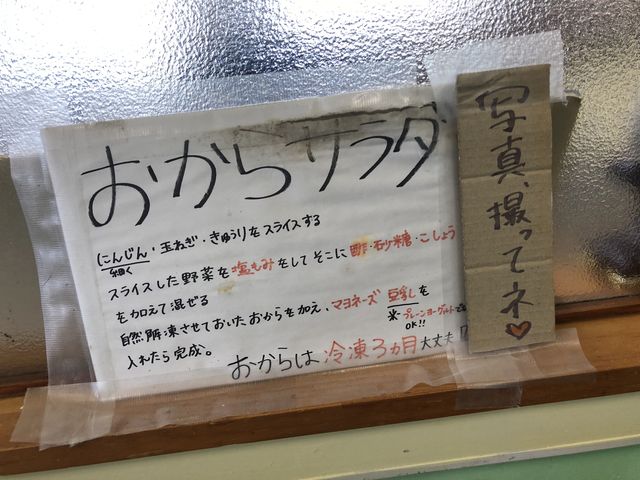 おからサラダ
にんじん・玉ねぎ・きゅうりをスライスする
細く
スライスした野菜を塩もみをしてそこに酢・砂糖・こしょう
を加えて混ぜる
自然解凍させておいたおからを加え、マヨネーズ 豆乳を
※プレーンヨーグルトでも
OK!!
入れたら完成。
おからは冷凍3ヵ月大丈夫
写真、撮ってネ♡